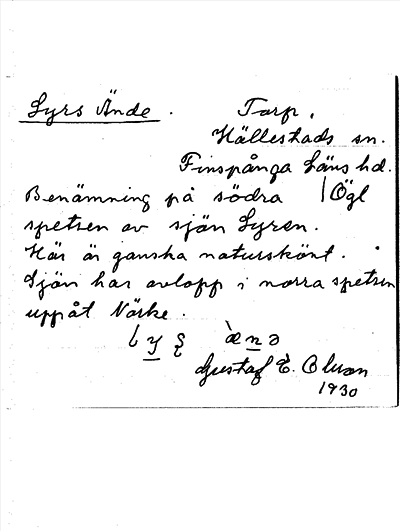 Lyrs Ände. Torp.
Hällestads sn.
Finspånga Läns hd.
Benämning på södra | Ögl
spetsen av sjön Lyren.
Här är ganska naturskönt.
Sjön har avlopp i norra spetsen
uppåt Närke.
Gustaf E. Olson
1930